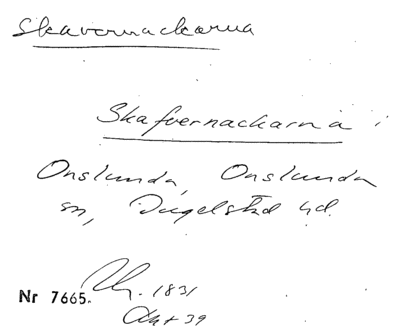 Skavernackorna
Skafvernackarna i
Onslunda, Onslunda
sn, Ingelstad hd.
Nr 7665. 1831
Akt 39